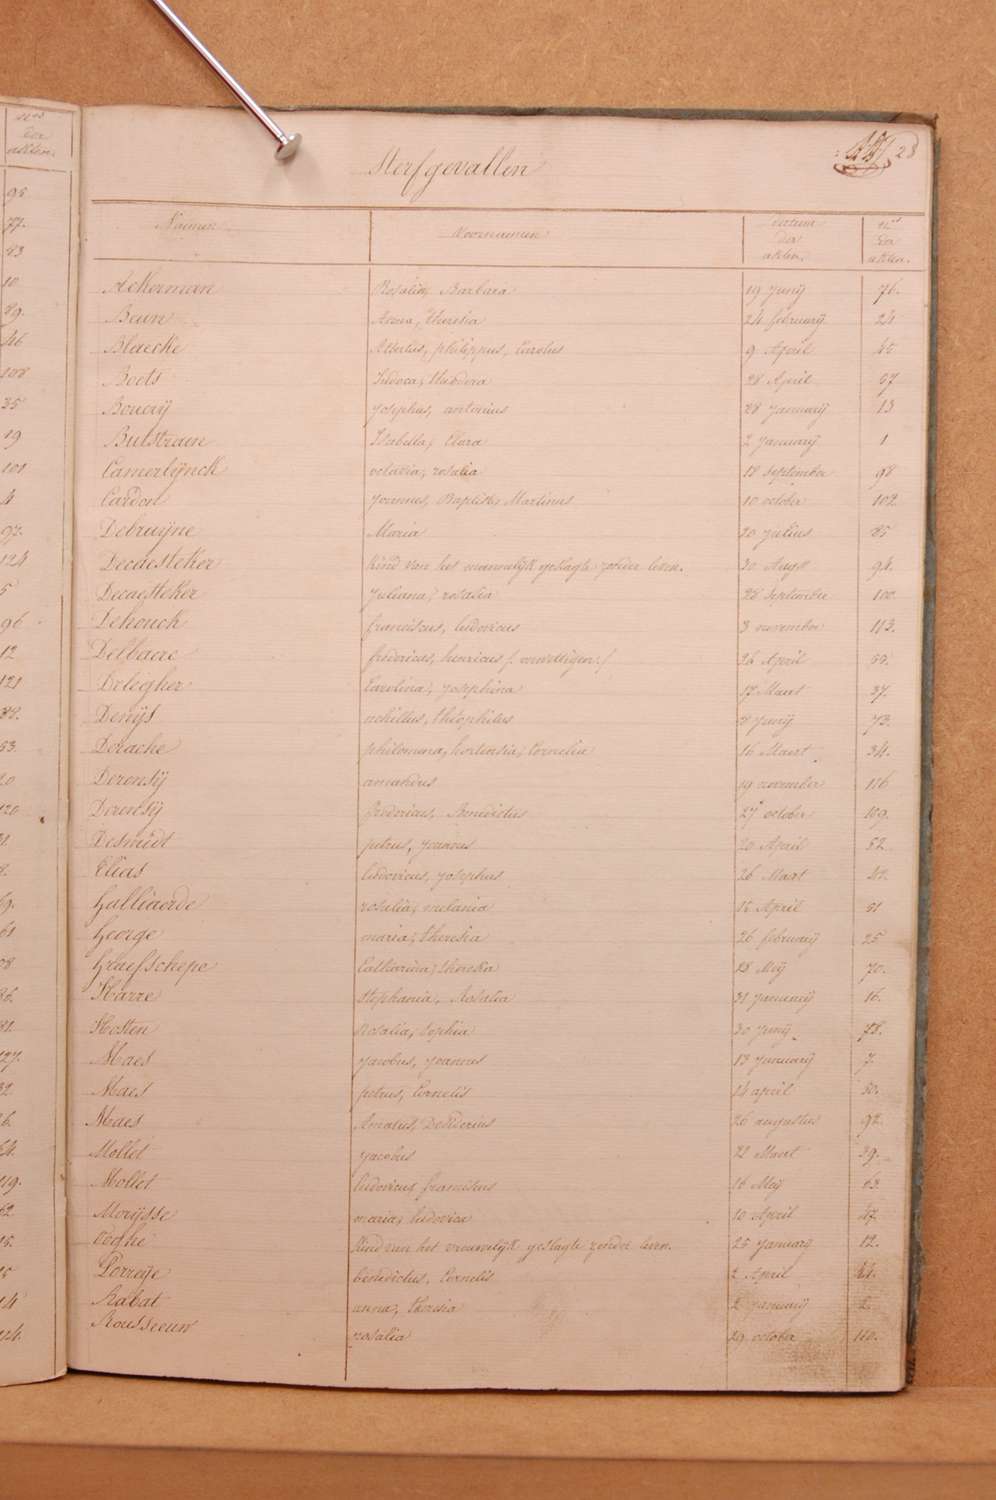 Sterfgevallen
28
Naamen Voornamen datum der akten. Nos der akten.
Ackerman Rosalia, Barbara 19 Junij 76.
Beun Anna, theresia 24 february 24
Blaecke Albertus, philippus, Carolus 9 April 45
Boets Ludoca, theodora 28 April 57
Boucrij Josephus, antonius 28 Januarij 13
Bulstraen Isabella, Clara 2 Januarij 1
Camerlijnck octavia, rosalia 18 September 98
Cardon Joannes, Baptiste, Martinus 10 october 102.
Debruijne Maria 20 Julius 85
Decaesteker kind van het mannelijk geslagte zonder leven. 30 Augt 94.
Decaesteker Juliana, rosalia 28 Septembre 100
Dehouck franciscus, ludovicus 3 november 113.
Delbaere fredericus, henricus 26 April 55.
Deleigher Carolina, Josephina 17 Maart 37.
Denijs achillus, théophilus 8 Junij 73.
Derache philomena, hortensia, Cornelia 16 Maart 34.
Derensij amandus 19 november 116
Derensij fredericus, Benedictus 27 october 109.
Desmidt petrus, Joannes 20 April 52
Elias ludovicus, Josephus 26 Maart 42.
Galliaerde rosalia, melania 15 April 51
George maria, theresia 26 february 25
Graefschepe Catharina, theresia 28 Meij 70.
Harre Stephania, Rosalia 31 Januarij 16.
Hosten Rosalia, Sophia 30 Junij 78.
Maes Jacobus, Joannes 13 Januarij 7.
Maes petrus, Cornelis 14 april 50.
Maes Amatus, Desiderius 26 augustus 92.
Mollet Jacobus 22 Maart 39.
Mollet ludovicus franciscus 16 Meij 63.
Moeijsse maria, ludovica 10 April 47.
Ooghe Kind van het vrouwelijk geslagte zonder leven. 25 January 12.
Porreije benedictus, Cornelis 2 April 44.
Rabat anna, theresia 2 Januarij 2.
Rousseeuw rosalia 29 october 110.